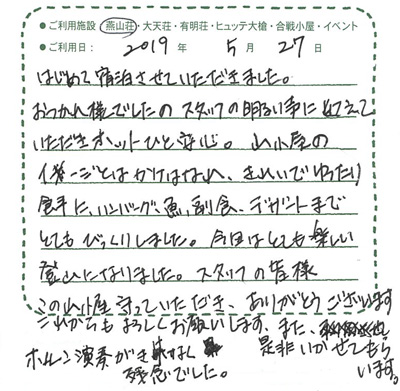 ●ご利用施設 燕山荘・大天荘・有明荘・ヒュッテ大槍・合戦小屋・イベント
●ご利用日: 2019 年 5 月 27 日
はじめて宿泊させていただきました。
おつかれ様でしたの スタッフの明るい声に
いただきホットひと安心。 山小屋の
イメージとはかけはなれ、きれいでゆったり
食事に、ハンバーグ、魚、副食、デザートまで
とてもびっくりしました。 今回はとても楽しい
登山になりました。 スタッフの皆様
この山小屋守っていただき、ありがとうございます
これからもよろしくお願いします、また、
ホルン演奏がきけなく 是非いかせてもら
残念でした。 います。